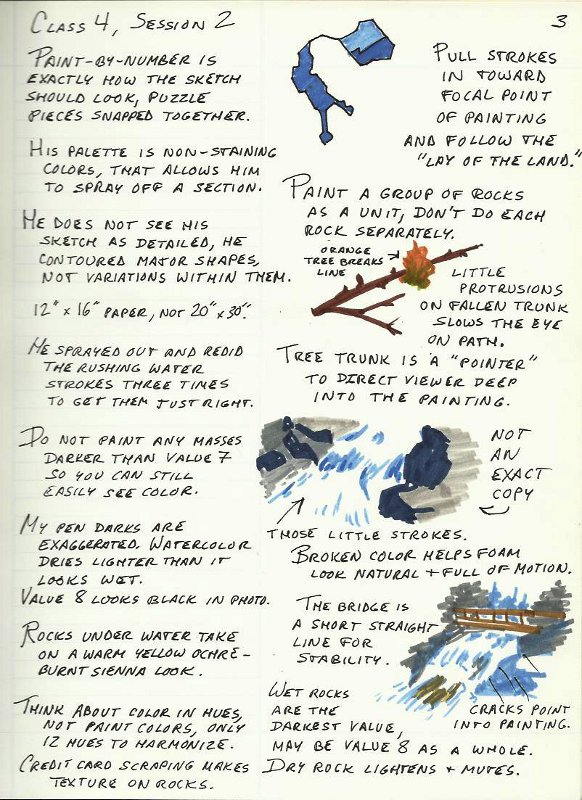 CLASS 4, SESSION 2
3
PAINT-BY-NUMBER IS
EXACTLY HOW THE SKETCH
SHOULD LOOK, PUZZLE
PIECES SNAPPED TOGETHER.
HIS PALETTE IS NON-STAINING
COLORS, THAT ALLOWS HIM
TO SPRAY OFF A SECTION.
HE DOES NOT SEE HIS
SKETCH AS DETAILED, HE
CONTOURED MAJOR SHAPES,
NOT VARIATIONS WITHIN THEM.
12" x 16" PAPER, NOT 20" x 30".
HE SPRAYED OUT AND REDID
THE RUSHING WATER
STROKES THREE TIMES
TO GET THEM JUST RIGHT.
DO NOT PAINT ANY MASSES
DARKER THAN VALUE 7
SO YOU CAN STILL
EASILY SEE COLOR.
MY PEN DARKS ARE
EXAGGERATED. WATERCOLOR
DRIES LIGHTER THAN IT
LOOKS WET.
VALUE 8 LOOKS BLACK IN PHOTO.
ROCKS UNDER WATER TAKE
ON A WARM YELLOW OCHRE-
BURNT SIENNA LOOK.
THINK ABOUT COLOR IN HUES,
NOT PAINT COLORS, ONLY
12 HUES TO HARMONIZE.
CREDIT CARD SCRAPING MAKES
TEXTURE ON ROCKS.
PULL STROKES
IN TOWARD
FOCAL POINT
OF PAINTING
AND FOLLOW THE
"LAY OF THE LAND."
PAINT A GROUP OF ROCKS
AS A UNIT, DON'T DO EACH
ROCK SEPARATELY.
ORANGE
TREE BREAKS
LINE
LITTLE
PROTRUSIONS
ON FALLEN TRUNK
SLOWS THE EYE
ON PATH.
TREE TRUNK IS A "POINTER"
TO DIRECT VIEWER DEEP
INTO THE PAINTING.
NOT
AN
EXACT
COPY
THOSE LITTLE STROKES.
BROKEN COLOR HELPS FOAM
LOOK NATURAL + FULL OF MOTION.
THE BRIDGE IS
A SHORT STRAIGHT
LINE FOR
STABILITY.
CRACKS POINT
INTO PAINTING.
WET ROCKS
ARE THE
DARKEST VALUE,
MAY BE VALUE 8 AS A WHOLE.
DRY ROCK LIGHTENS + MUTES.